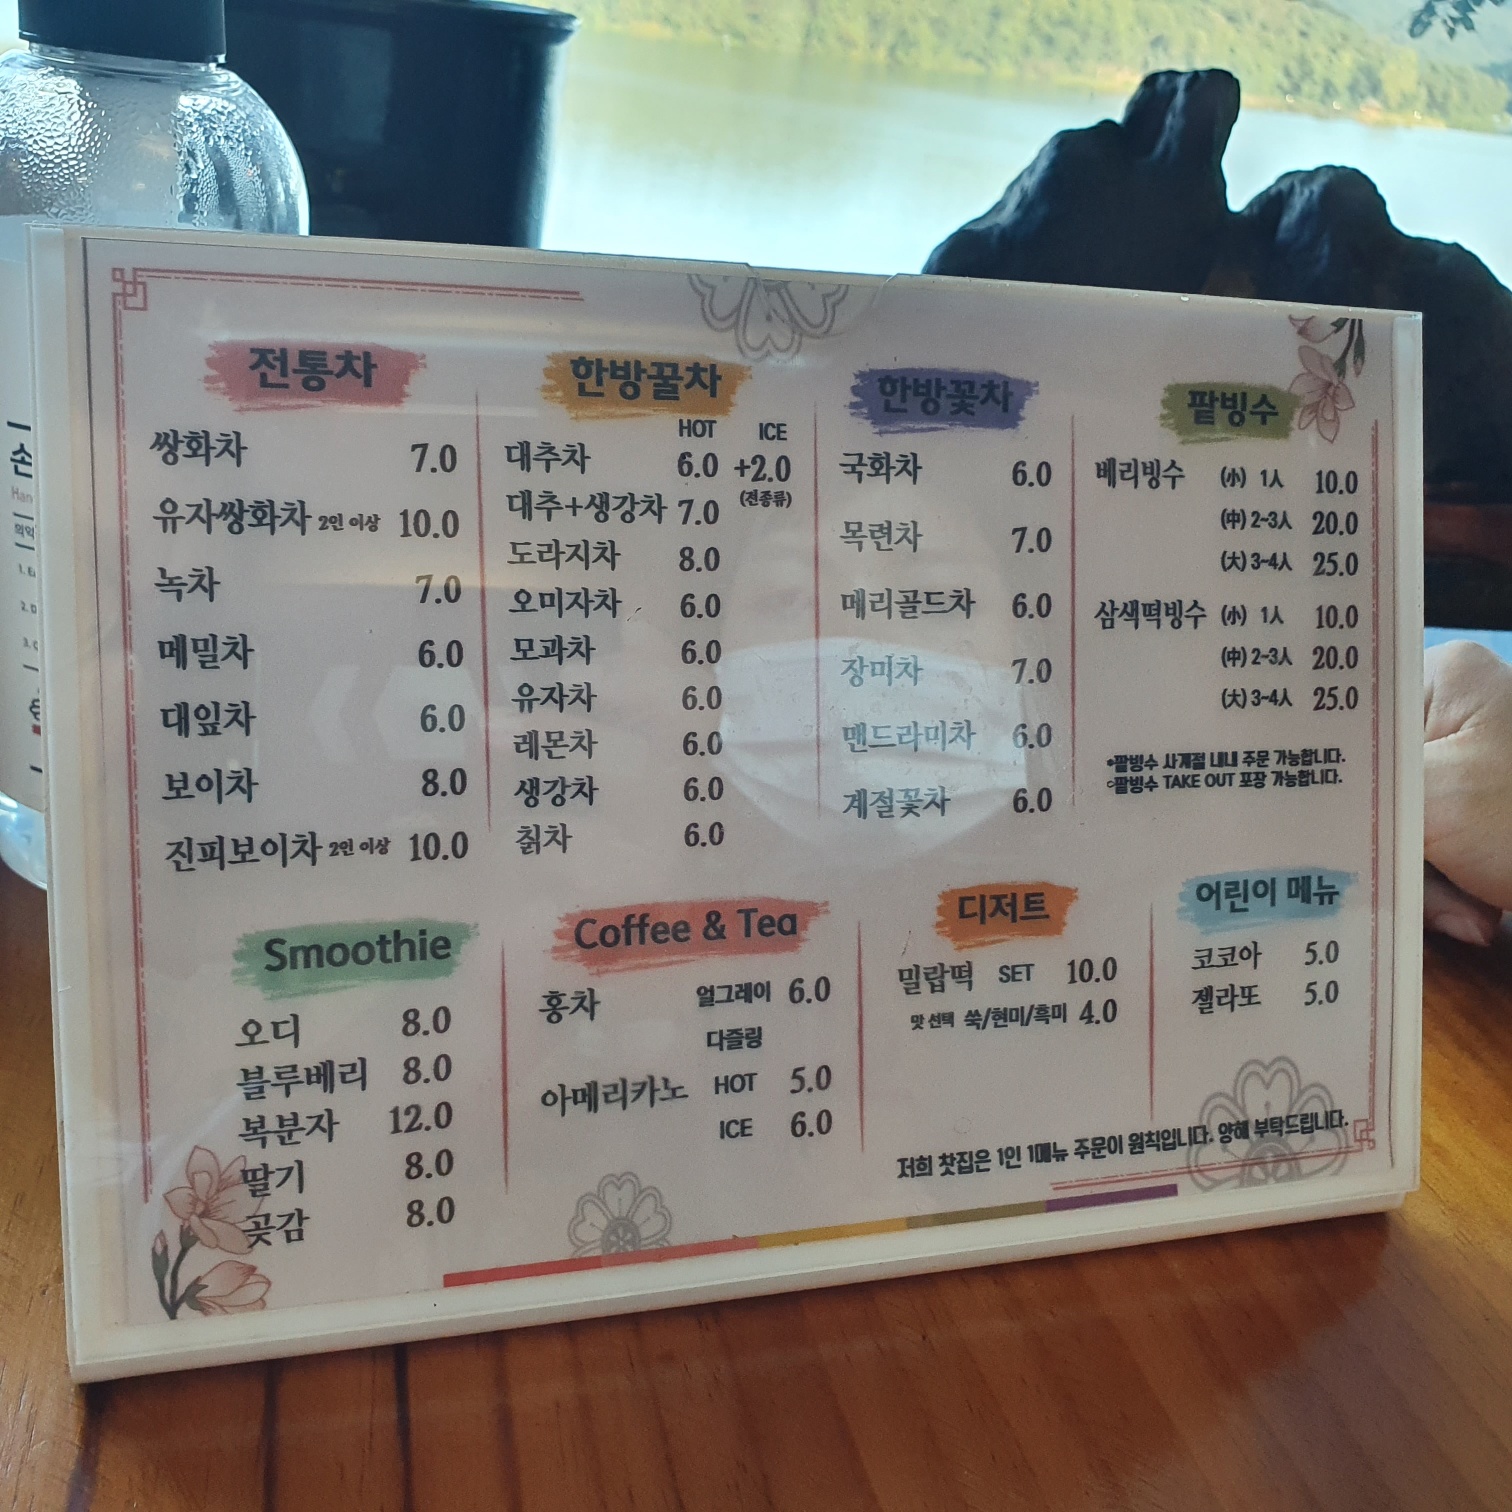 전통차
쌍화차 7.0
유자쌍화차 2인 이상 10.0
녹차 7.0
메밀차 6.0
대잎차 6.0
보이차 8.0
진피보이차 2인 이상 10.0
한방꿀차
HOT ICE
대추차 6.0 +2.0
(전종류)
대추+생강차 7.0
도라지차 8.0
오미자차 6.0
모과차 6.0
유자차 6.0
레몬차 6.0
생강차 6.0
칡차 6.0
한방꽃차
국화차 6.0
목련차 7.0
메리골드차 6.0
장미차 7.0
맨드라미차 6.0
계절꽃차 6.0
팥빙수
베리빙수 (小) 1人 10.0
(中) 2~3人 20.0
(大) 3~4人 25.0
삼색떡빙수 (小) 1人 10.0
(中) 2~3人 20.0
(大) 3~4人 25.0
팥빙수 사계절 내내 주문 가능합니다.
팥빙수 TAKE OUT 포장 가능합니다.
Smoothie
오디 8.0
블루베리 8.0
복분자 12.0
딸기 8.0
곶감 8.0
Coffee & Tea
홍차 얼그레이 6.0
다즐링
아메리카노 HOT 5.0
ICE 6.0
디저트
밀랍떡 SET 10.0
맛 선택 쑥/현미/흑미 4.0
어린이 메뉴
코코아 5.0
젤라또 5.0
저희 찻집은 1인 1메뉴 주문이 원칙입니다. 양해 부탁드립니다.
손
1.
2.
3.